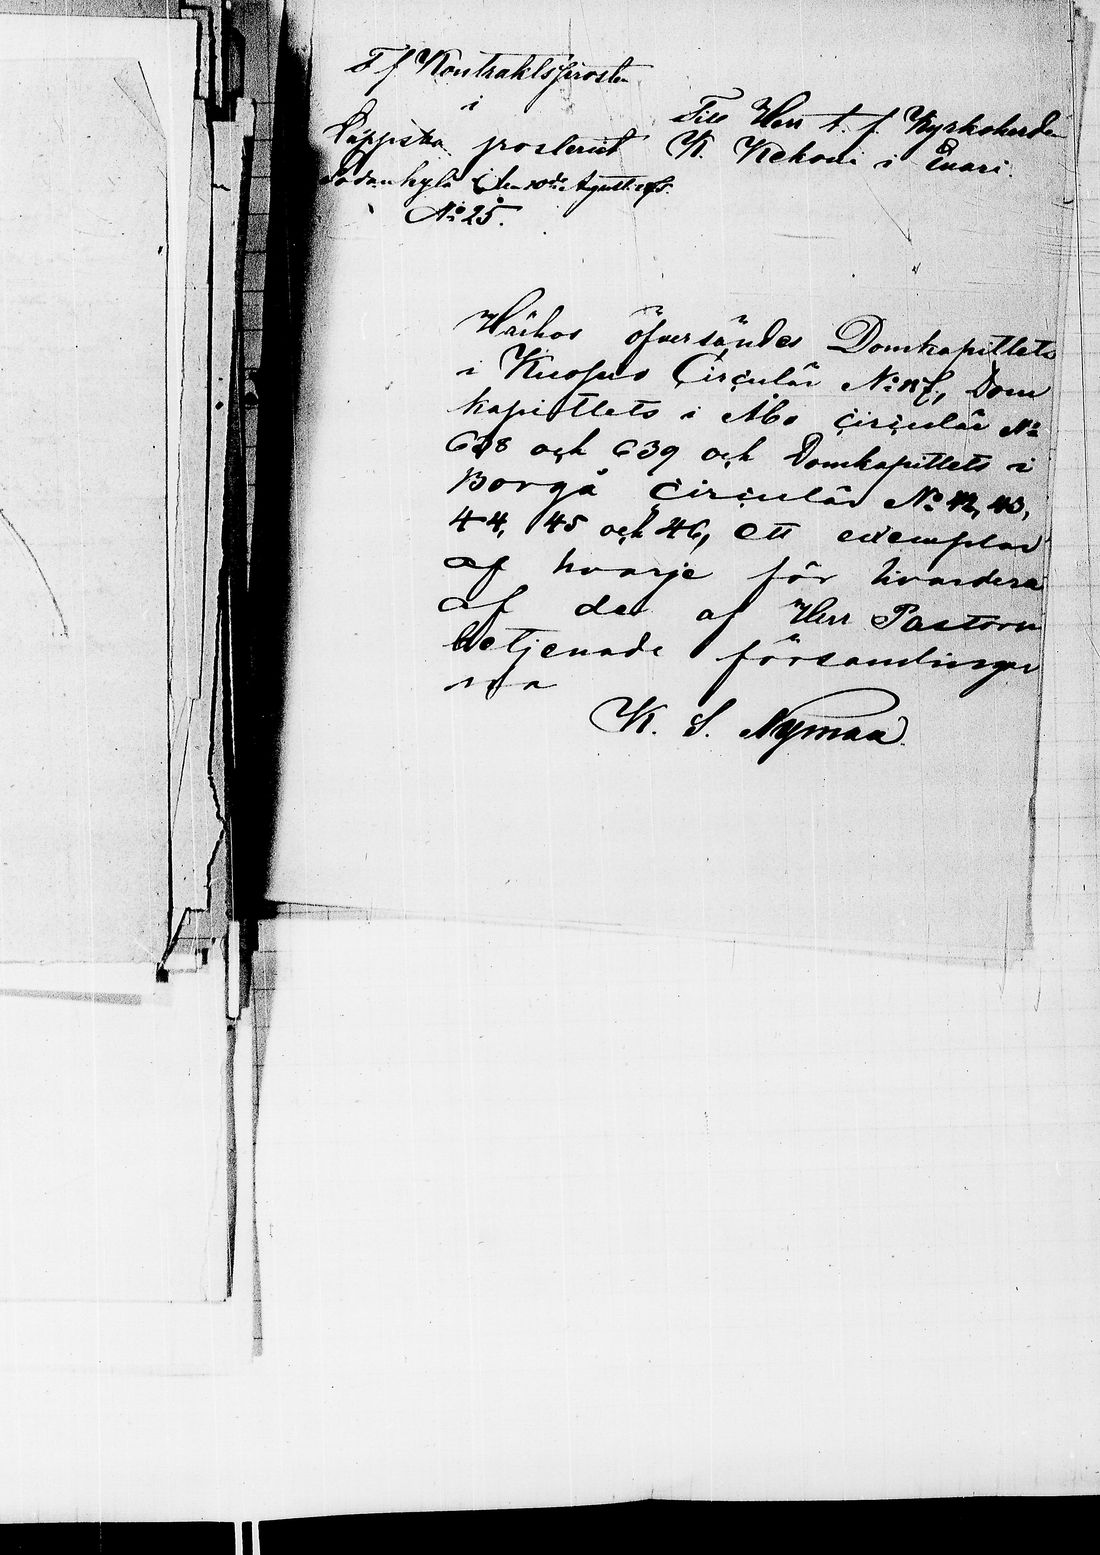 T f Kontraktsprosten
i
Lappska prosteriet
Sodankylä den 10de Agusti
No 25.
Till Herr t. f. Kyrkoherden
K. Kekoni i Enari.
Härhos öfversändes Domkapitlets
i Kuopio Circulär No Dom
kapitlets i Åbo circulär No
638 och 639 och Domkapitlets i
Borgå Circulär No 42, 43,
44, 45 och 46, ett exemplar
af hvarje för hvardera
af de af Herr Pastorn
betjenade församlingar
na
K. S. Nyman.